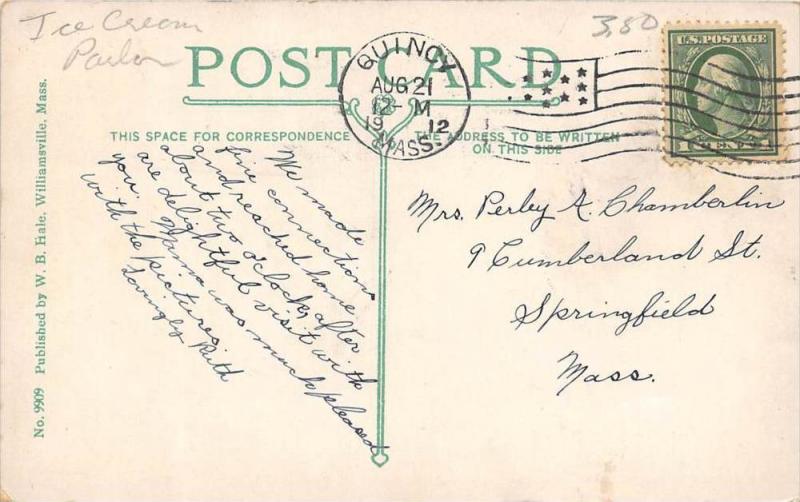 Ice Cream
Parlor
3.50
POST CARD
QUINCY
AUG 21
12-M
1912
MASS.
U.S. POSTAGE
THIS SPACE FOR CORRESPONDENCE
THE ADDRESS TO BE WRITTEN
ON THIS SIDE
We made
fine connections
and reached home
about two o'clock, after
are delightful visit with
you. Mama was much pleased
with the pictures.
Lovingly Ruth
Mrs. Perley A. Chamberlin
9 Cumberland St.
Springfield
Mass.
No. 9909 Published by W. B. Hale, Williamsville, Mass.